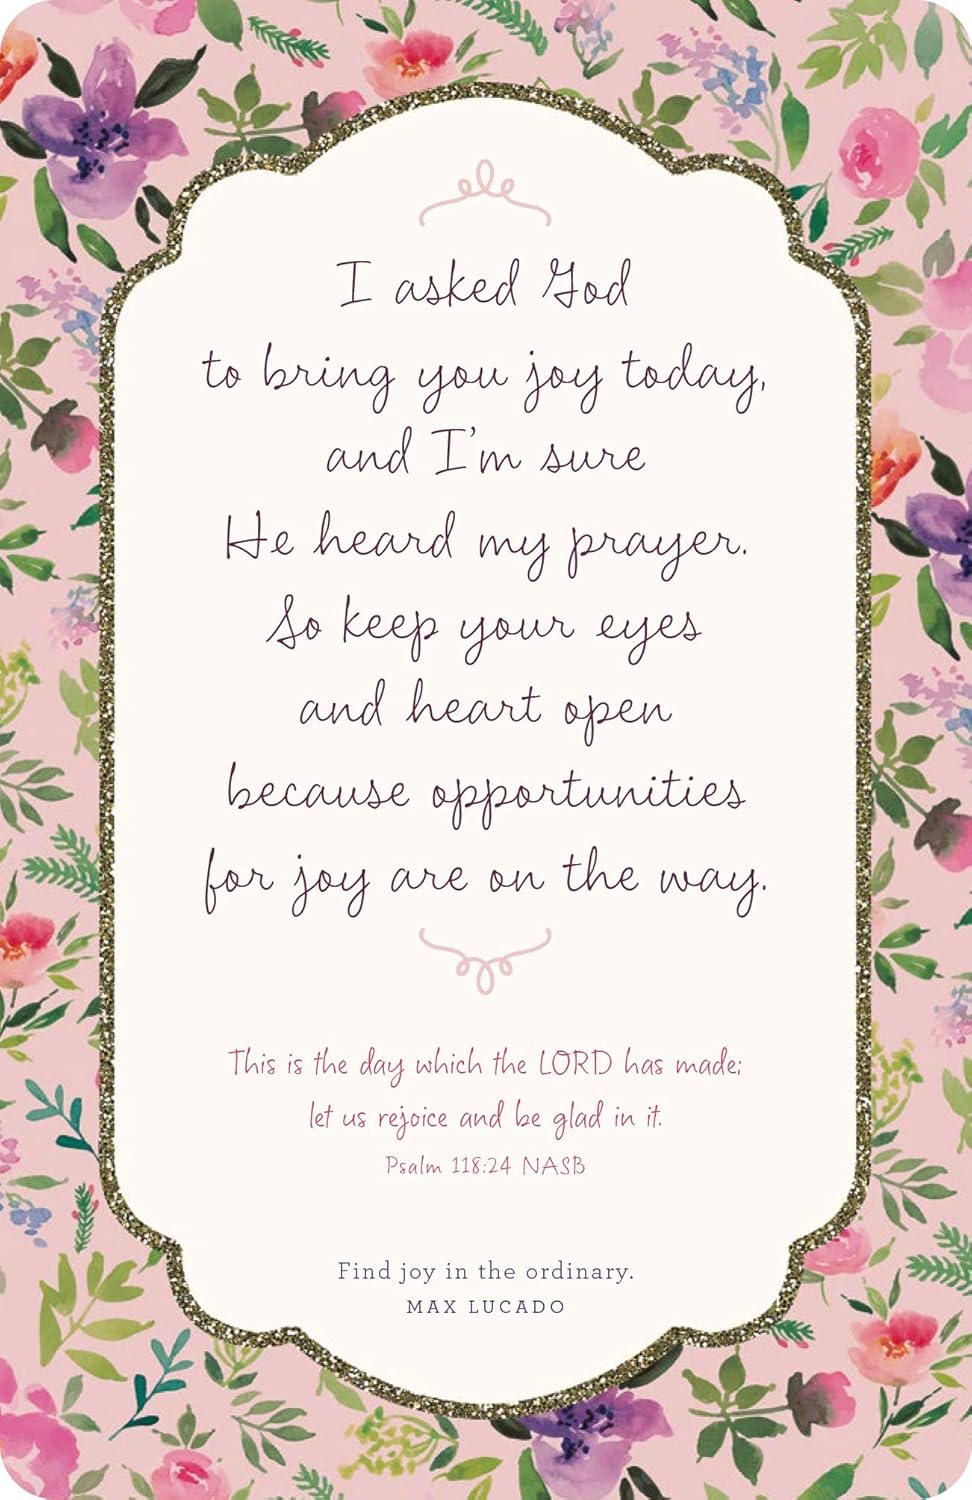 I asked God
to bring you joy today,
and I'm sure
He heard my prayer.
So keep your eyes
and heart open
because opportunities
for joy are on the way.
This is the day which the LORD has made;
let us rejoice and be glad in it.
Psalm 118:24 NASB
Find joy in the ordinary.
MAX LUCADO